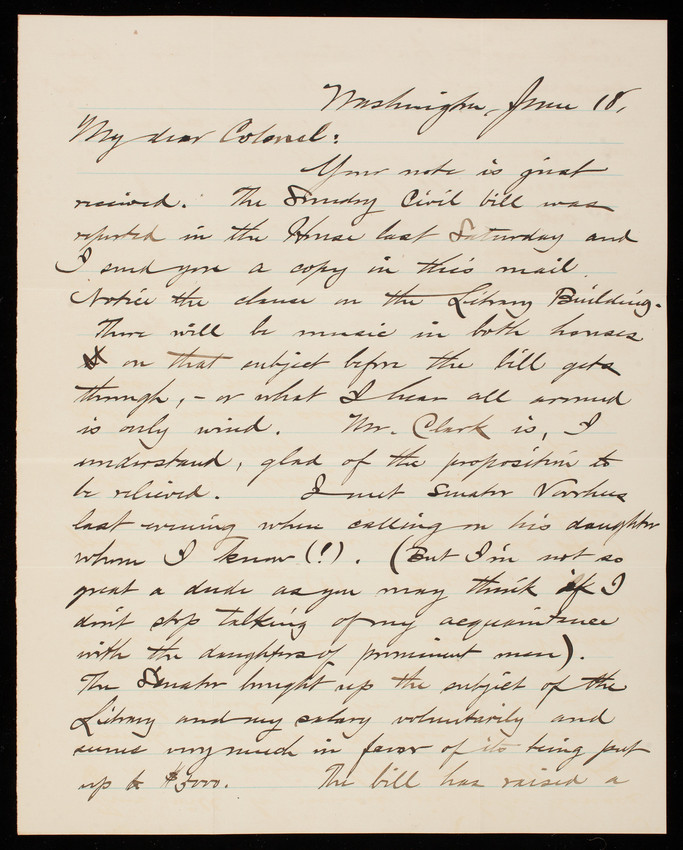 Washington, June 18,
My dear Colonel:
Your note is just
received. The Sundry Civil bill was
reported in the House last Saturday and
I send you a copy in this mail.
Notice the clause on the Library Building.
There will be music in both houses
on that subject before the bill gets
through, - or what I hear all around
is only wind. Mr. Clark is, I
understand, glad of the proposition to
be relieved. I met Senator Voorhees
last evening when calling on his daughter
whom I know (!). (But I'm not so
great a dude as you may think if I
don't stop talking of my acquaintance
with the daughters of prominent men).
The Senator brought up the subject of the
Library and my salary voluntarily and
seems very much in favor of its being put
up to $5000. The bill has raised a